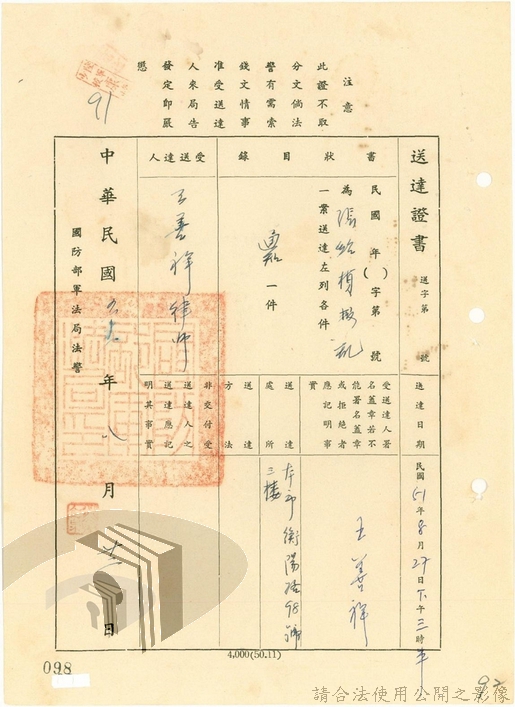 送達證書
送字第 號
民國 年( )字第 號
為張 楨叛亂
一案送達左列各件
書狀目錄
通知一件
受送達人
王善祥律師
送達日期
民國51年8月27日下午三時半
受送達人署
名蓋章若不
能署名蓋章
或拒絕者
應記明事
實
王善祥
送達處所
本市衡陽路98號
三樓
送達方法
非交付受
送達人之
送達應記
明其事實
中華民國五十一年八月廿二日
國防部軍法局法警
注意
此證不取
分文倘法
警有需索
錢文情事
准受送達
人來局告
發定即嚴
懲
91
4,000(50.11)
098
92
請合法使用公開之影像